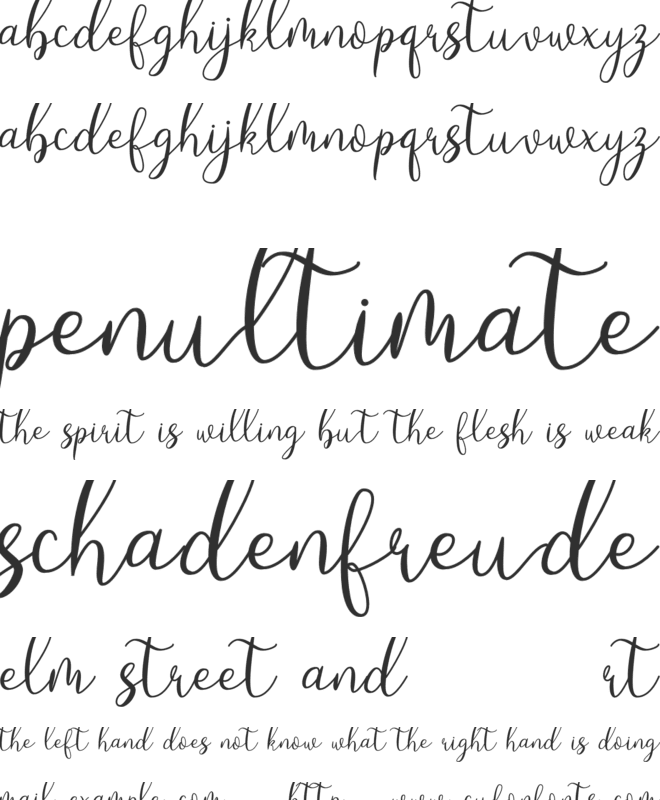 abcdefghijklmnopqrstuvwxyz
abcdefghijklmnopqrstuvwxyz
penultimate
the spirit is willing but the flesh is weak
schadenfreude
elm street and rt
the left hand does not know what the right hand is doing
mail example com http www cubofonts com